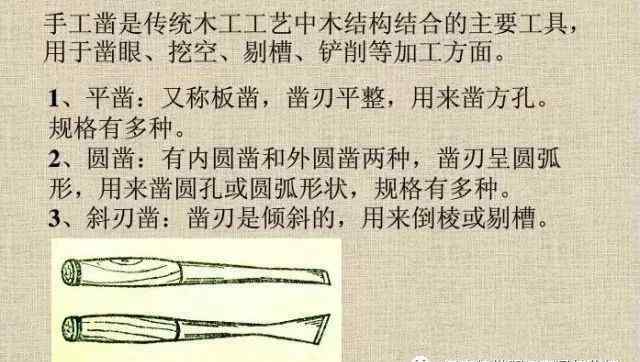 手工凿是传统木工工艺中木结构结合的主要工具，
用于凿眼、挖空、剔槽、铲削等加工方面。
1、平凿：又称板凿，凿刃平整，用来凿方孔。
规格有多种。
2、圆凿：有内圆凿和外圆凿两种，凿刃呈圆弧
形，用来凿圆孔或圆弧形状，规格有多种。
3、斜刃凿：凿刃是倾斜的，用来倒棱或剔槽。